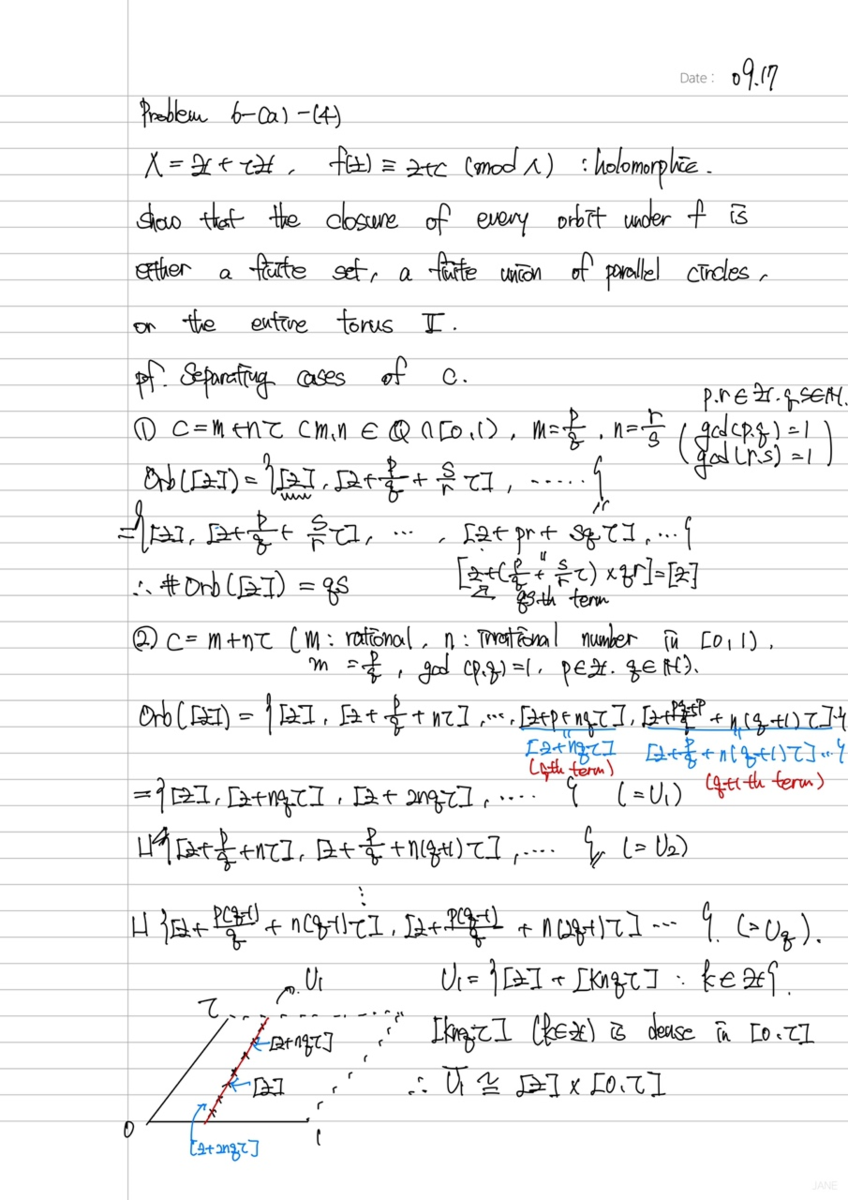 Date : 09.17
Problem 6-(a)-(4)
Λ = ℤ + τℤ, f(z) ≡ z+c (mod Λ) : holomorphic.
show that the closure of every orbit under f is
either a finite set, a finite union of parallel circles,
or the entire torus 𝕋.
pf. Separating cases of c.
p.r ∈ ℤ. q,s ∈ ℕ.
① c = m+nτ (m,n ∈ ℚ ∩ [0,1), m = p/q, n = r/s (gcd(p,q)=1
gcd(r,s)=1)
Orb([z]) = {[z], [z + p/q + s/r τ], ......}
= {[z], [z + p/q + s/r τ], ..., [z + pr + sqτ], ...}
[z + (p/q + s/r τ) × qr] = [z]
∴ #Orb([z]) = qs
qs-th term
② c = m+nτ (m : rational, n : irrational number in [0,1),
m = p/q, gcd(p,q)=1, p∈ℤ. q∈ℕ).
Orb([z]) = {[z], [z + p/q + nτ], ..., [z+p+nqτ], [z + pq+p/q + n(q+1)τ]..}
[z+nqτ] [z + p/q + n(q+1)τ]...}
(q-th term) (q+1-th term)
= {[z], [z+nqτ], [z+2nqτ], .... } (=U₁)
⊔ {[z + p/q + nτ], [z + p/q + n(q+1)τ], .... } (=U₂)
⋮
⊔ {[z + p(q-1)/q + n(q-1)τ], [z + p(q-1)/q + n(2q-1)τ] ... } (=U_q).
U₁ U₁ = {[z] + [knqτ] : k∈ℤ}.
τ [z+nqτ] [knqτ] (k∈ℤ) is dense in [0,τ]
[z] ∴ Ū₁ ≅ [z] × [0,τ]
0 1
[z+2nqτ]
JANE